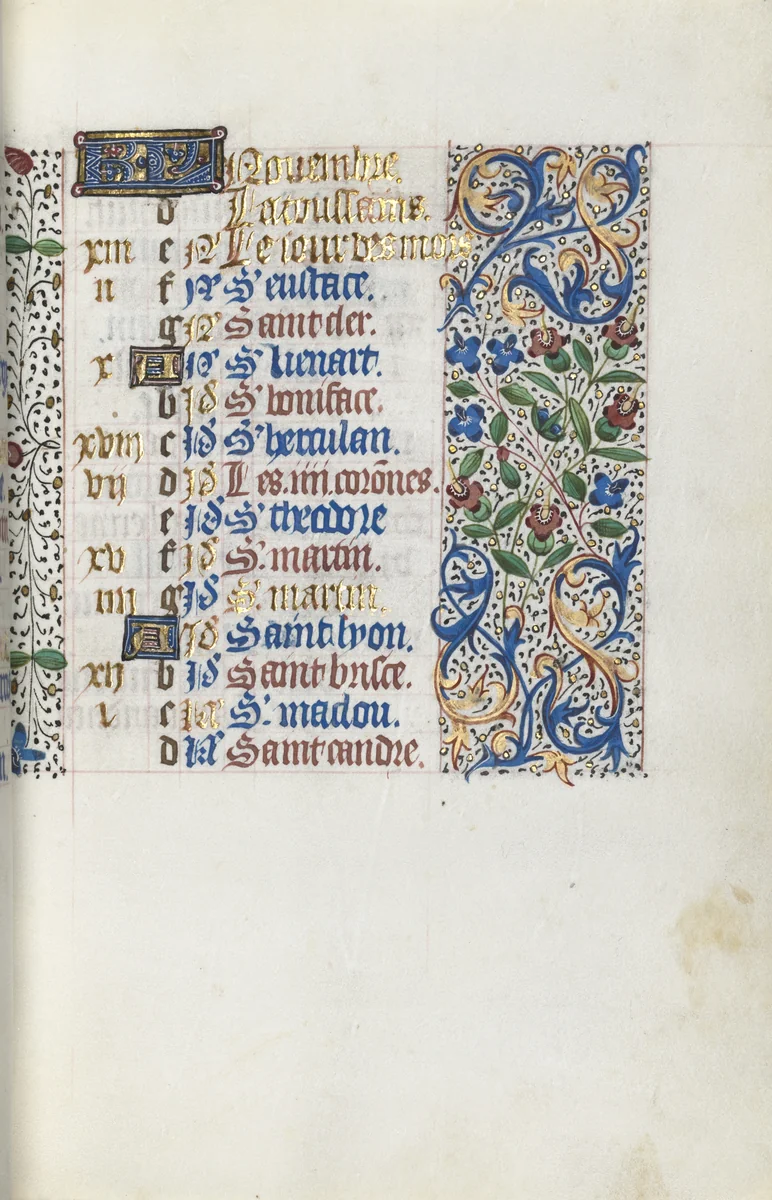 KL Nouembre.
d La toussains.
xiii e N Le iour des mors
ii f N S' eustace.
g N Saint cler.
x A N S' lienart.
b Id S' boniface.
xviii c Id S' herculan.
vii d Id Les .iiii. corōnes.
e Id S' theodore
xv f Id S. martin.
iiii g Id S. martin.
A Id Saint lyon.
xii b Id Saint brisce.
i c kl' S'. maclou.
d kl' Saint candre.